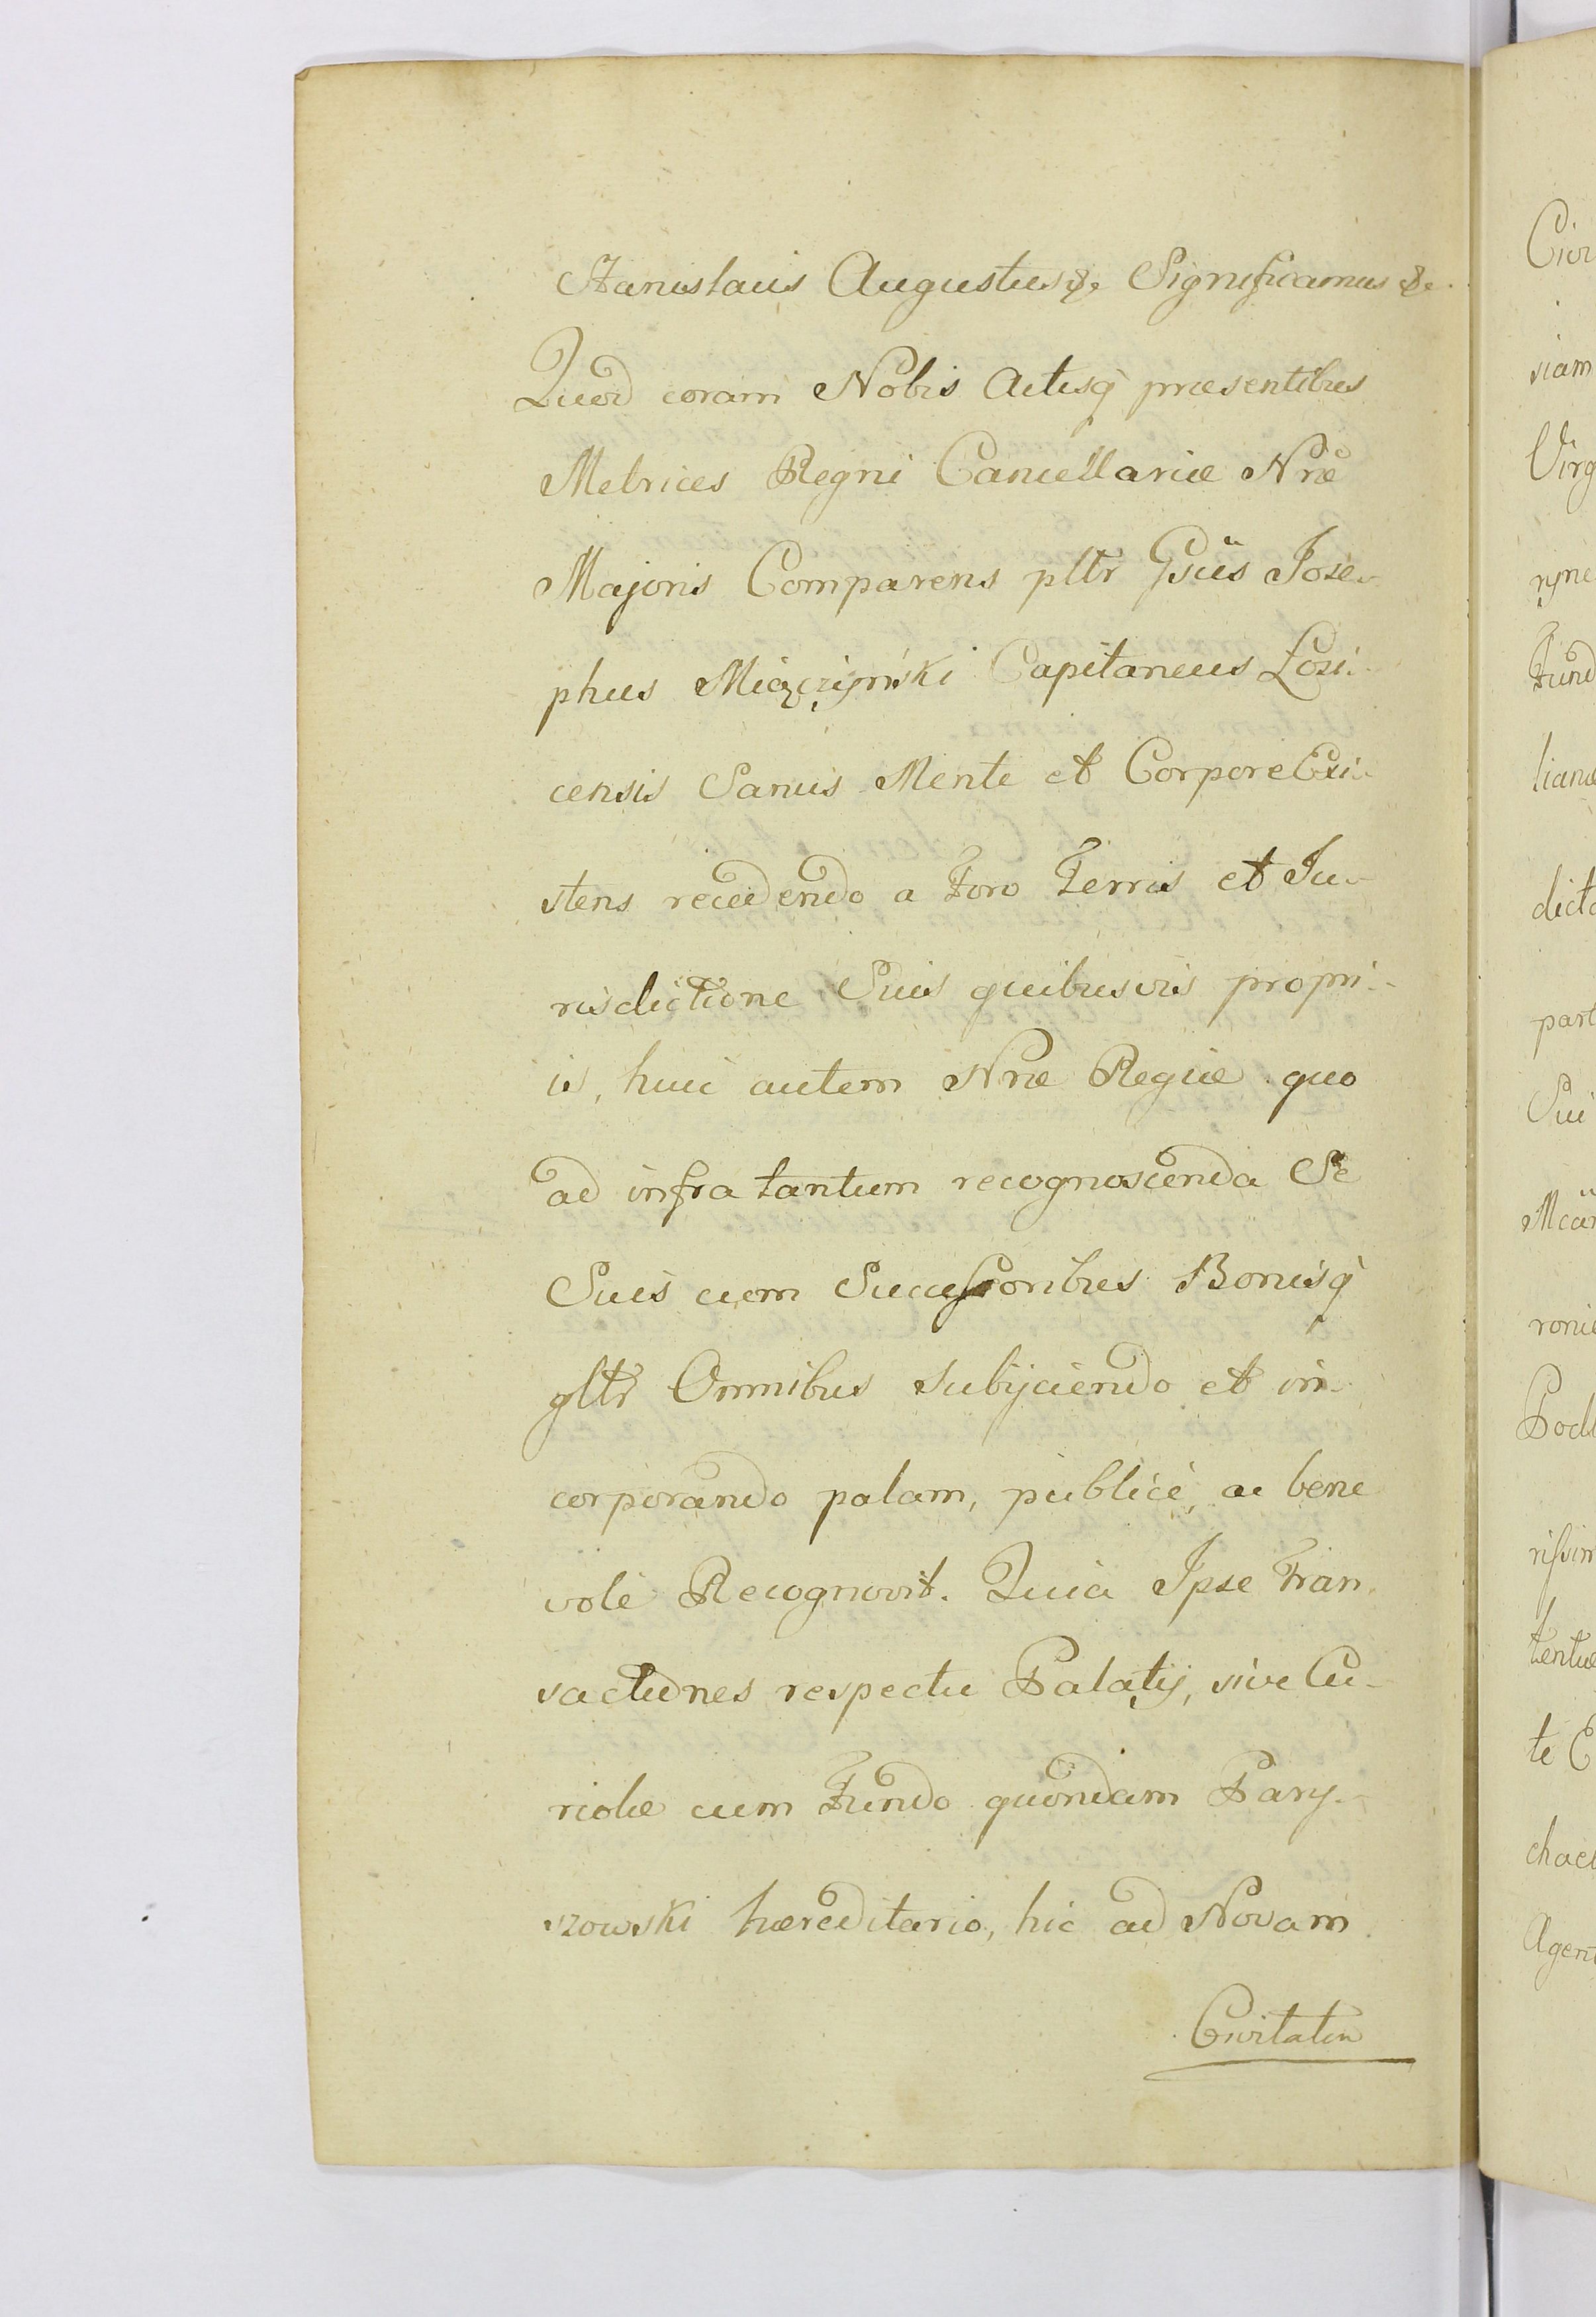 Stanislaus Augustus &c Significamus &c.
Quod coram Nobis Actisq́ præsentibus
Metrices Regni Cancellariæ Nræ
Majoris Comparens pltr Gsüs Jose-
phus Miączyński Capitaneus Łosi-
censis Sanus Mente et Corpore Exi-
stens recedendo a Foro Terris et Ju-
risdictione Suis quibusvis propri-
is, huic autem Nræ Regiæ quo
ad infra tantum recognoscenda Se
Suis cum Successoribus Bonisq́
gltr Omnibus subijciendo et in-
corporando palam, publicé, ac bene
volé Recognovit. Quia Ipse Tran-
sactiones respectu Palatij, sive Cu-
riolæ cum Fundo quondam Pary-
szowski hæreditario, hic ad Novam
Civitatem
Civi
viam
Virg
ryne
Fund
lianæ
dicto
part
Sui
ronie
rissim
tentiæ
te C
chael
Agent